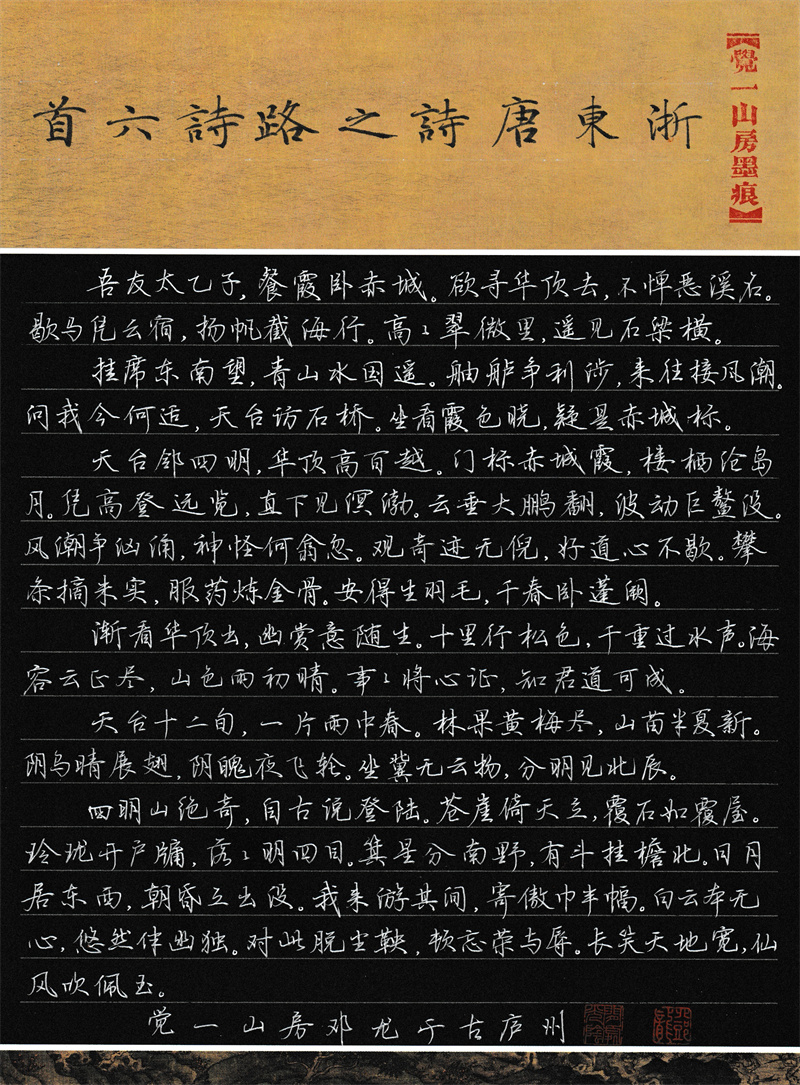 【覺一山房墨痕】
浙東唐詩之路詩六首
吾友太乙子,餐霞卧赤城。欲寻华顶去,不惮恶溪名。
歇马凭云宿,扬帆截海行。高〻翠微里,遥见石梁横。
挂席东南望,青山水国遥。舳舻争利涉,来往接风潮。
问我今何适,天台访石桥。坐看霞色晓,疑是赤城标。
天台邻四明,华顶高百越。门标赤城霞,楼栖沧岛
月。凭高登远览,直下见溟渤。云垂大鹏翻,波动巨鳌没。
风潮争汹涌,神怪何翕忽。观奇迹无倪,好道心不歇。攀
条摘朱实,服药炼金骨。安得生羽毛,千春卧蓬阙。
渐看华顶出,幽赏意随生。十里行松色,千重过水声。海
容云正尽,山色雨初晴。事〻将心证,知君道可成。
天台十二旬,一片雨中春。林果黄梅尽,山苗半夏新。
阳乌晴展翅,阴魄夜飞轮。坐冀无云物,分明见北辰。
四明山绝奇,自古说登陆。苍崖倚天立,覆石如覆屋。
玲珑开户牖,落〻明四目。箕星分南野,有斗挂檐北。日月
居东西,朝昏互出没。我来游其间,寄傲巾半幅。白云本无
心,悠然伴幽独。对此脱尘鞅,顿忘荣与辱。长笑天地宽,仙
风吹佩玉。
觉一山房邓龙于古庐州